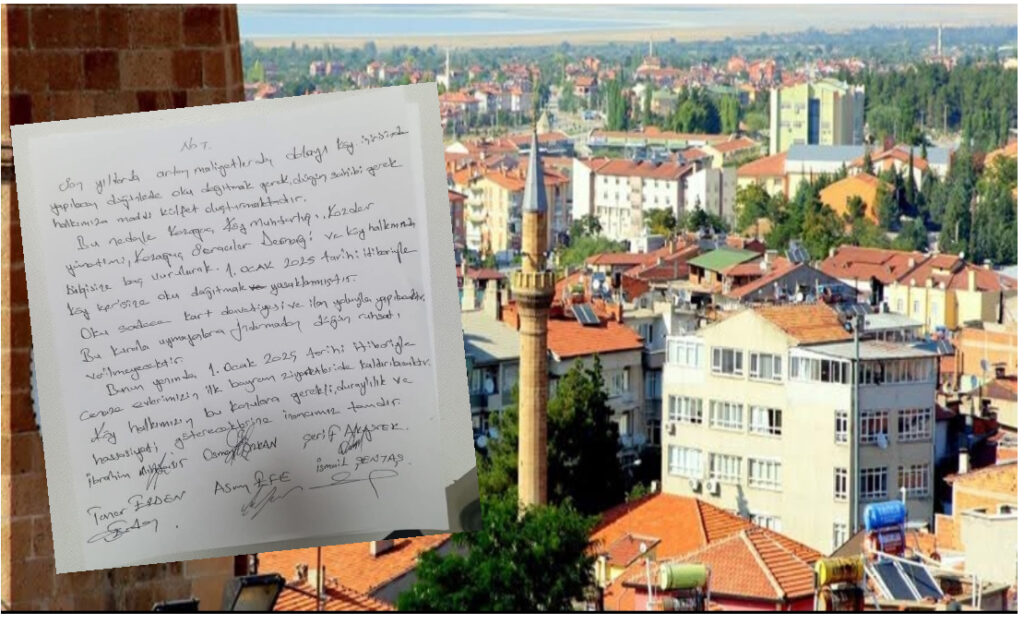 No 7.
Son yıllarda artan maliyetlerden dolayı köy içerisinde
yapılacak düğünlerde oku dağıtmak gerek, düğün sahibi gerek
halkımıza maddi külfet oluşturmaktadır.
Bu nedenle Kozağaç Köy Muhtarlığı, Kozader
yönetimi, Kozağaç Avcılar Derneği ve köy halkımızın
bilgisine baş vurularak. 1. OCAK 2025 tarihi itibariyle
köy içerisine oku dağıtmak yasaklanmıştır.
Oku sadece kart davetiyesi ve ilan yoluyla yapılacaktır.
Bu kurala uymayanlara düğün ruhsatı,
verilmeyecektir.
Bunun yanında 1. Ocak 2025 tarihi itibariyle
Cenaze evlerimizin ilk bayram ziyaretleride kaldırılacaktır.
Köy halkımızın bu konulara gerekli, duyarlılık ve
hassasiyeti göstereceklerine inancımız tamdır.
İbrahim Osman ÖZKAN Şerif
Taner ERDEN Asım EFE İsmail ŞENTAŞ